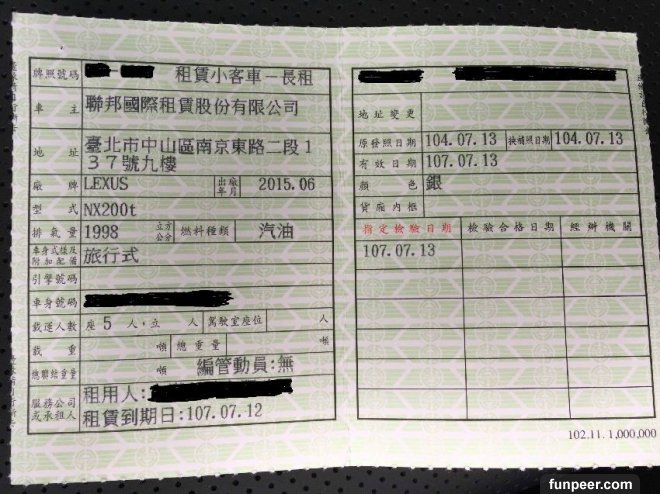 牌照號碼 租賃小客車－長租
車主 聯邦國際租賃股份有限公司
地址 臺北市中山區南京東路二段１
３７號九樓
廠牌 LEXUS 出廠年月 2015.06
型式 NX200t
排氣量 1998 立方公分 燃料種類 汽油
車身式樣及附加配備 旅行式
引擎號碼
車身號碼
載運人數 座 5 人,立 人 駕駛室座位 人
載重 噸 總重量 噸
總聯結重量 噸 編管動員:無
服務公司或承租人 租用人:
租賃到期日:107.07.12
地址變更
原發照日期 104.07.13 換補照日期 104.07.13
有效日期 107.07.13
顏色 銀
貨廂內框
指定檢驗日期 檢驗合格日期 經辦機關
107.07.13
102.11. 1,000,000
funpeer.com